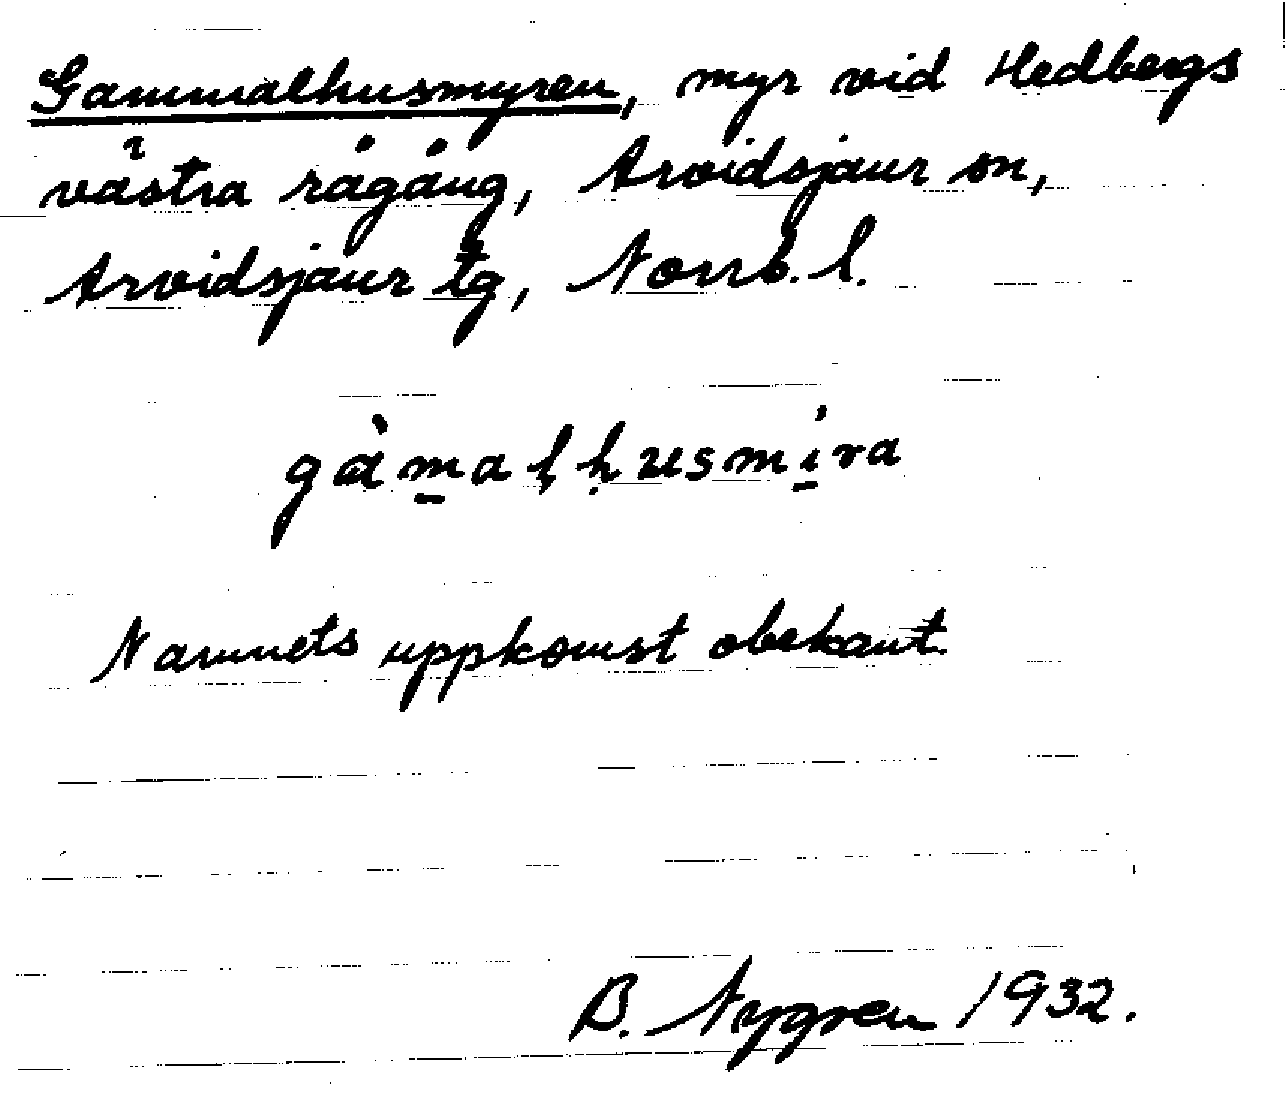 Gammalhusmyren, myr vid Hedbergs
västra rågång, Arvidsjaur sn,
Arvidsjaur tg, Norrb. l.
gàm̲alḥusmi̲ra
Namnets uppkomst obekant.
B. Nygren 1932.